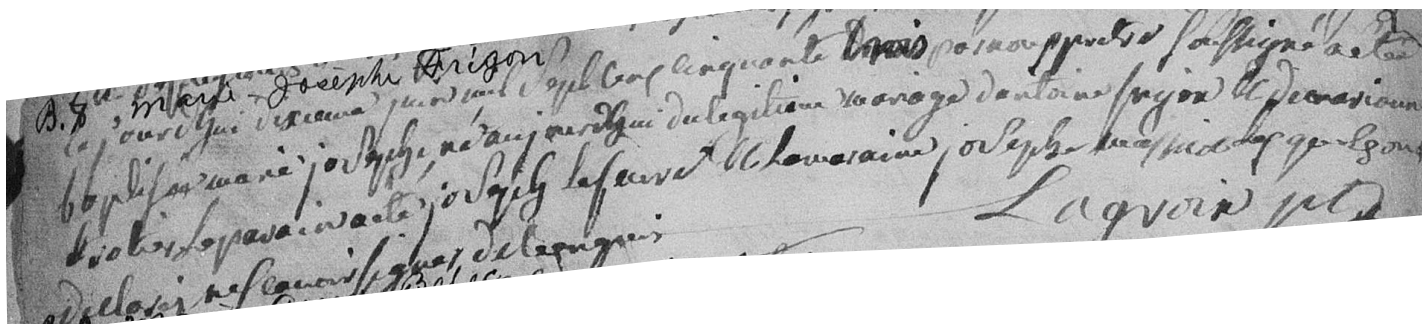 B. 8 Marie-Joseph Frigon
ce jourdhui dixieme juin mil sept cens cinquante trois par nous pretre soussigné a eté
baptisée marie josephe né aujourdhui du legitime mariage dantoine frigon et de marianne
trotier le parain a eté joseph lefevre et la maraine josephe massicot lesquels ont
declarés ne scavoir signer de ce enquis
Lagroix ptr